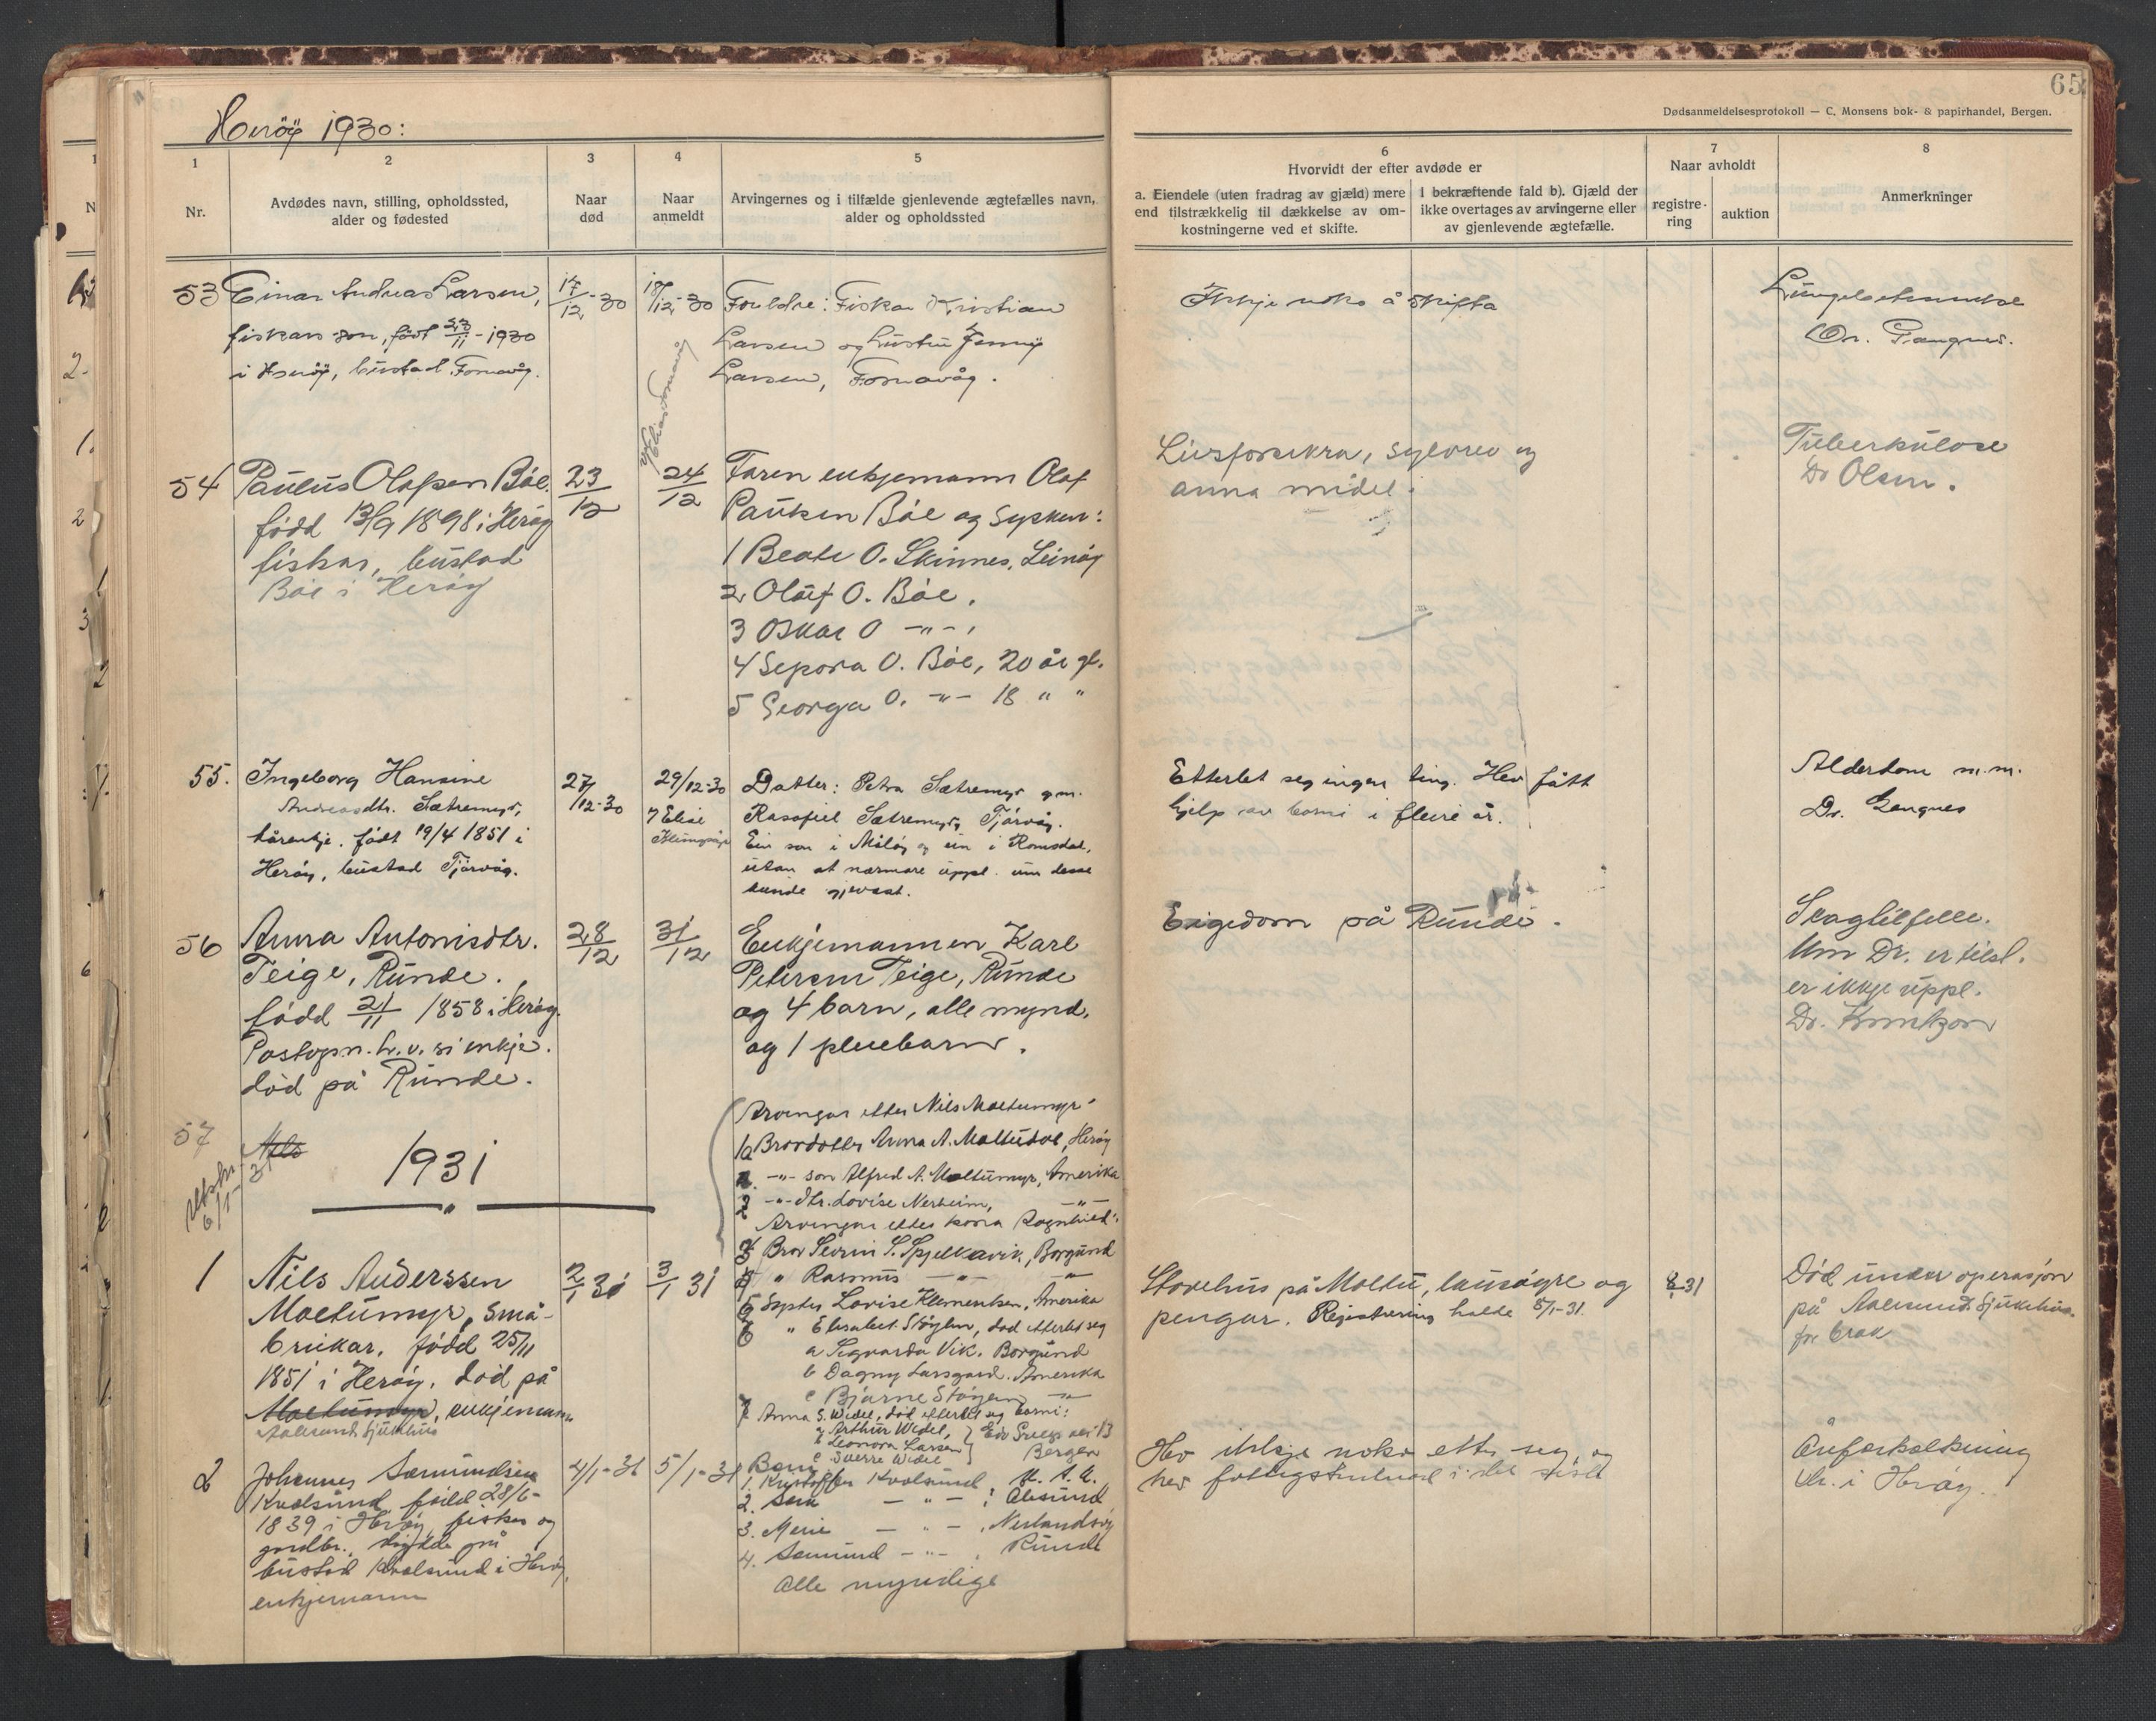 Herøy 1930:
65
Dødsanmeldelsesprotokoll — C. Monsens bok- & papirhandel, Bergen.
1
2
3
4
5
6
7
8
Nr.
Avdødes navn, stilling, opholdssted,
alder og fødested
Naar
død
Naar
anmeldt
Arvingernes og i tilfælde gjenlevende ægtefælles navn,
alder og opholdssted
Hvorvidt der efter avdøde er
a. Eiendele (uten fradrag av gjæld) mere
end tilstrækkelig til dækkelse av om-
kostningerne ved et skifte.
I bekræftende fald b). Gjæld der
ikke overtages av arvingerne eller
av gjenlevende ægtefælle.
Naar avholdt
registre-
ring
auktion
Anmerkninger
53
Einar Andreas Larsen,
fiskars son, født 23/11 - 1930
i Herøy, bustad Fosnavåg.
17/12-30
18/12-30
Foreldre: Fiskar Kristian
Larsen og hustru Jenny
Larsen, Fosnavåg.
Ikkje noko å skifta
Dr.
54
Paulus Olafsen Bøe.
fødd 13/9 1898 i Herøy
fiskar, bustad
Bøe i Herøy
23/12
24/12
Faren enkjemann Olaf
Paulsen Bøe og sysken:
1 Beate O. Skinnes, Leinøy
2 Olaf O. Bøe.
3 Oskar O -"-,
4 Sepora O. Bøe, 20 år gl.
5 Georga O. -"- 18 " "
Livsforsikra, sylvrev og
anna midel.
Tuberkulose
Dr Olsen.
55.
Ingeborg Hansine
Andreasdtr. Sætremyr,
kårenkje. født 19/4 1851 i
Herøy, bustad Tjørvåg.
27/12-30
29/12-30
v/ Elise
Datter: Petra Sætremyr gm.
Rasafiel Sætremyr, Tjørvåg.
Ein son i Måløy og ein i Romsdal,
utan at nærmare uppl. um desse
kunde gjevast.
Etterlet seg ingen ting. Hev fått
hjelp av borni i fleire år.
Alderdom m.m.
Dr. Gangnes
56
Anna Antonisdtr.
Teige, Runde.
fødd 21/11 1858 i Herøy.
Postopn. h.v. si enkje.
død på Runde.
28/12
31/12
Enkjemannen Karl
Petersen Teige, Runde
og 4 barn, alle mynd.
og 1 pleiebarn.
Eigedom på Runde.
Slagtilfelle.
Um Dr. er tilsl.
er ikkje uppl.
Dr. Knutzon
57
Nils
6/1-31
1931
Arvingar etter Nils Moltumyr:
1a Brordotter Anna A. Moltudal, Herøy
-"- son Alfred A. Moltumyr, Amerika
-"- dtr. Lovise Nerheim, -"-
Arvingar etter kona Ragnhild:
Bror Sevrin S. Spjelkavik, Borgund
" Rasmus -"- -"-
Syster Lovise Klementsen, Amerika
" Elisabet Støylen, død etterlet seg
a Sigvarda Vik. Borgund
b Dagny Larsgard. Amerika
c Bjarne Støylen -"-
7 Anna S. Widel, død etterlet seg borni:
a Arthur Widel,
b Leonora Larsen
c Sverre Widel
Bergen
1
Nils Anderssen
Moltumyr, små-
brukar, fødd 25/11
1851 i Herøy, død på
Moltumyr, enkjemann
Aalesund Sjukehus
2/1 31
3/1 31
Stovehus på Moltu, lausøyre og
pengar. Registrering halde 8/1-31.
8/1 31
Død under operasjon
på Aalesund Sjukehus
for brok
2
Johannes Sæmundsen
Kvalsund, fødd 28/6-
1839 i Herøy, fisker og
gardbr., døydde på
bustad Kvalsund i Herøy,
enkjemann
4/1-31
5/1-31
Born:
1. Kristoffer Kvalsund U.S.A.
2. -"- i Ålesund
3. Merie -"-, Nerlandsøy
4. Sæmund -"-, Runde
Alle myndige
Hev ikkje noko etter seg og
hev fattigstudnad i det siste
Åreforkalkning
i Herøy.